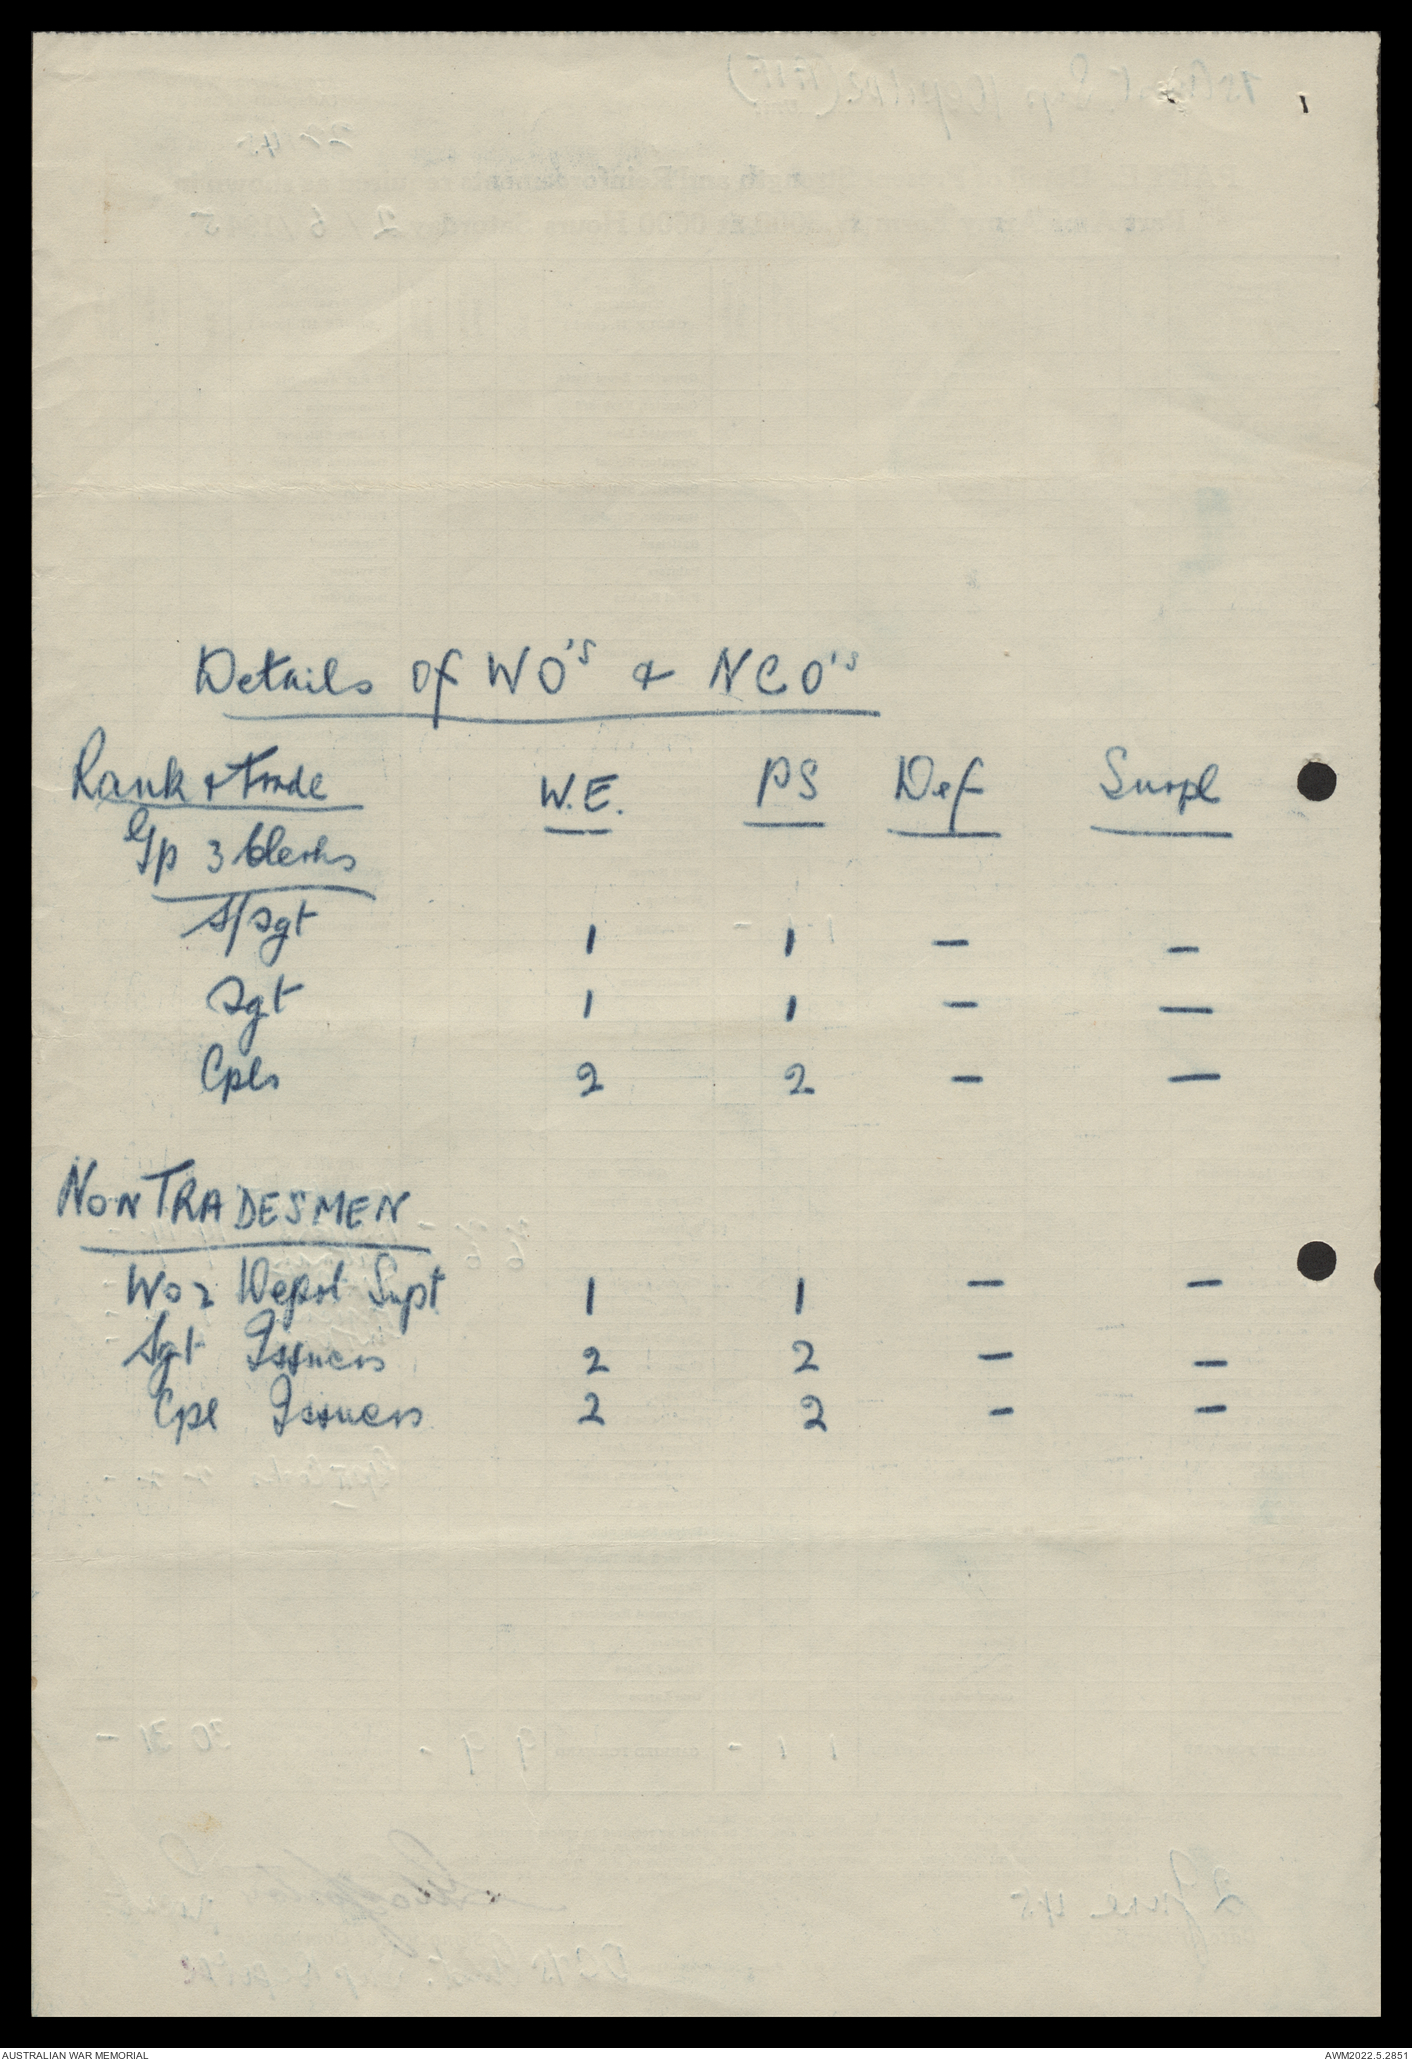 Details of WO's & NCO's
Rank & Trade W.E. PS Def Surpl
Gp 3 Clerks
S/Sgt 1 1 – –
Sgt 1 1 – –
Cpls 2 2 – –
NON TRADESMEN
WO2 Depot Supt 1 1 – –
Sgt Issuers 2 2 – –
Cpl Issuers 2 2 – –
AUSTRALIAN WAR MEMORIAL AWM2022.5.2851